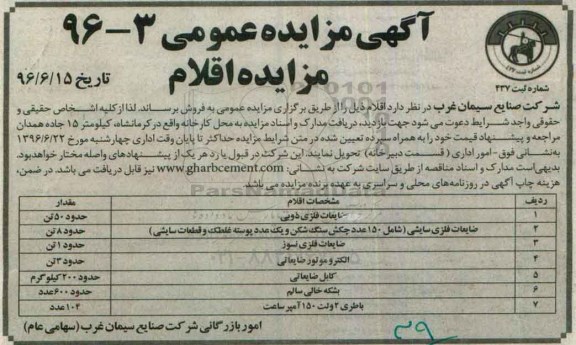 آگهی مزایده عمومی ۳-۹۶
مزایده اقلام
تاریخ ۹۶/۶/۱۵
شماره ثبت ۴۳۷
شرکت صنایع سیمان غرب در نظر دارد اقلام ذیل را از طریق برگزاری مزایده عمومی به فروش برساند. لذا از کلیه اشخاص حقیقی و
حقوقی واجد شرایط دعوت می شود جهت بازدید، دریافت مدارک و اسناد مزایده به محل کارخانه واقع در کرمانشاه، کیلومتر ۱۵ جاده همدان
مراجعه و پیشنهاد قیمت خود را به همراه سپرده تعیین شده در متن شرایط مزایده حداکثر تا پایان وقت اداری چهارشنبه مورخ ۱۳۹۶/۶/۲۲
به نشانی فوق-امور اداری (قسمت دبیرخانه) تحویل نمایند. این شرکت در قبول یا رد هر یک از پیشنهادهای واصله مختار خواهد بود.
بدیهی است مدارک و اسناد مناقصه از طریق سایت شرکت به نشانی: www.gharbcement.com نیز قابل دریافت می باشد. در ضمن،
هزینه چاپ آگهی در روزنامه های محلی و سراسری به عهده برنده مزایده می باشد.
ردیف مشخصات اقلام مقدار
۱ ضایعات فلزی ذوبی حدود ۵۰ تن
۲ ضایعات فلزی سایشی (شامل ۱۵۰ عدد چکش سنگ شکن و یک عدد پوسته غلطک و قطعات سایشی) حدود ۸ تن
۳ ضایعات فلزی نسوز حدود ۱ تن
۴ الکتروموتور ضایعاتی حدود ۳ تن
۵ کابل ضایعاتی حدود ۲۰۰ کیلوگرم
۶ بشکه خالی سالم حدود ۶۰۰ عدد
۷ باطری ۲ ولت ۱۵۰ آمپر ساعت ۱۰۴ عدد
امور بازرگانی شرکت صنایع سیمان غرب (سهامی عام)
۳۹